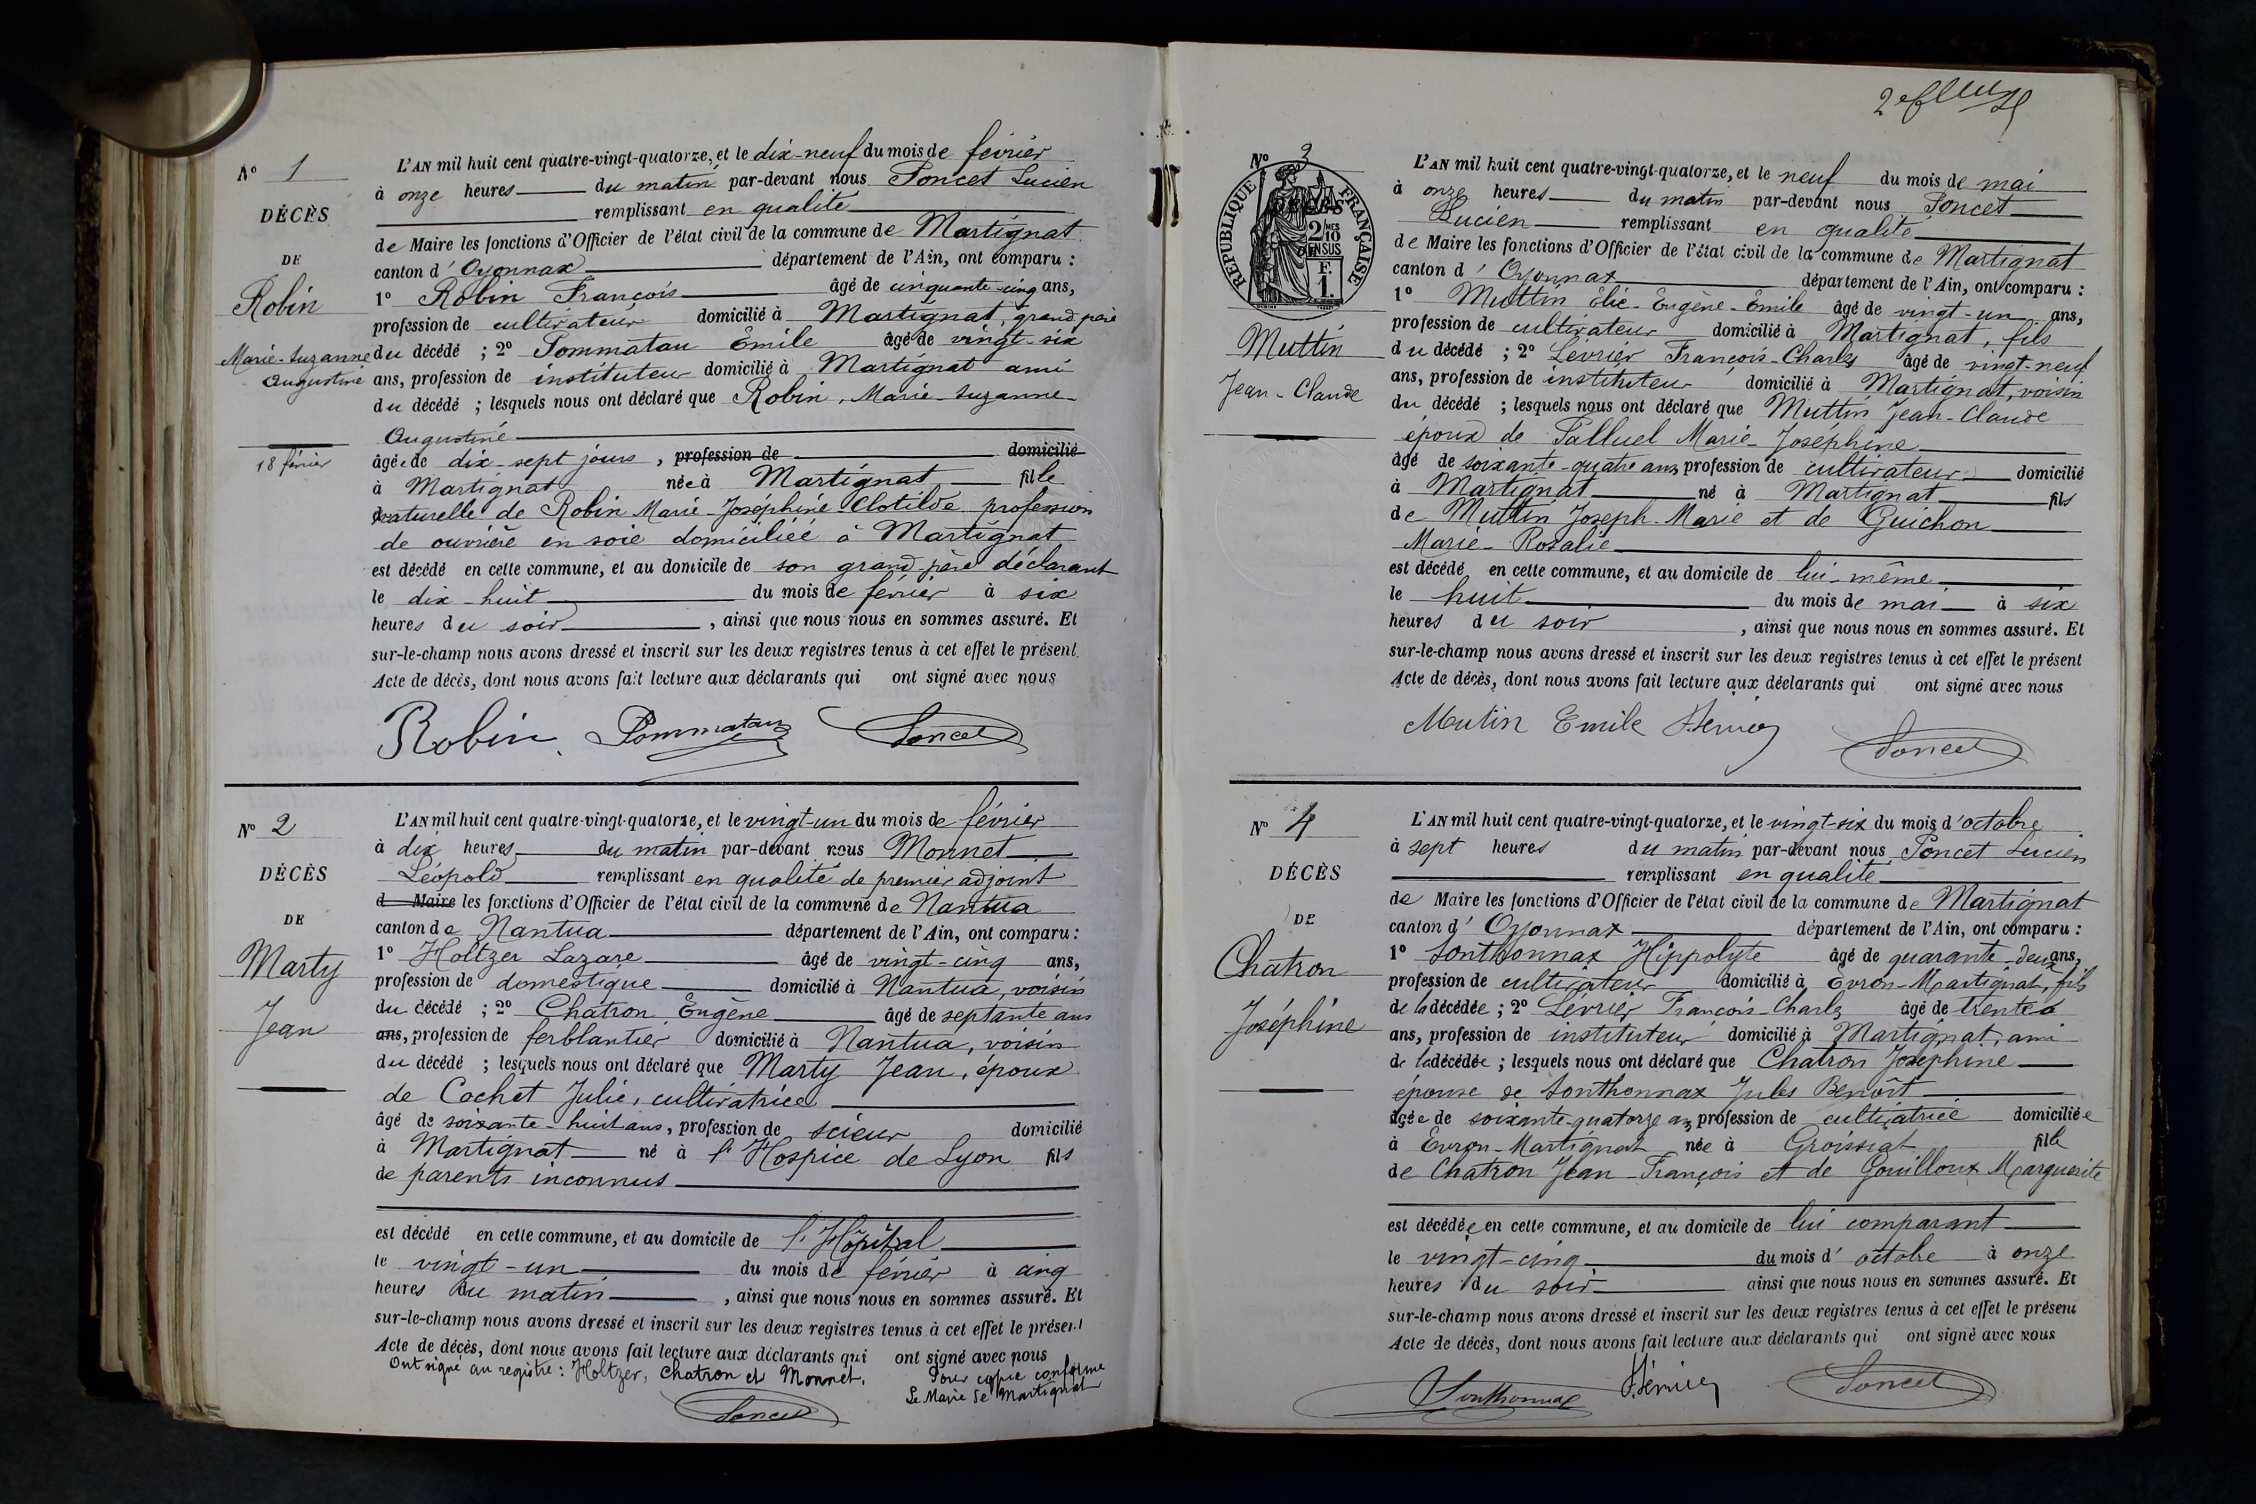 Nº 1
DÉCÈS
DE
Robin
Marie-Suzanne
Augustine
18 février
L'AN mil huit cent quatre-vingt-quatorze, et le dix-neuf du mois de février
à onze heures du matin par-devant nous Poncet Lucien
remplissant en qualité
de Maire les fonctions d'Officier de l'état civil de la commune de Martignat
canton d'Oyonnax département de l'Ain, ont comparu :
1º Robin François âgé de cinquante-cinq ans,
profession de cultivateur domicilié à Martignat, grand père
du décédé ; 2º Pommatau Emile âgé de vingt-six
ans, profession de instituteur domicilié à Martignat ami
du décédé ; lesquels nous ont déclaré que Robin, Marie-Suzanne-
Augustine
âgée de dix-sept jours, profession de domicilié
à Martignat née à Martignat fille
naturelle de Robin Marie-Joséphine Clotilde profession
de ouvrière en soie domiciliée à Martignat
est décédé en cette commune, et au domicile de son grand-père déclarant
le dix-huit du mois de février à six
heures du soir, ainsi que nous nous en sommes assuré. Et
sur-le-champ nous avons dressé et inscrit sur les deux registres tenus à cet effet le présent
Acte de décès, dont nous avons fait lecture aux déclarants qui ont signé avec nous
Robin Pommatau Poncet
Nº 2
DÉCÈS
DE
Marty
Jean
L'AN mil huit cent quatre-vingt-quatorze, et le vingt-un du mois de février
à dix heures du matin par-devant nous Monnet
Léopold remplissant en qualité de premier adjoint
d Maire les fonctions d'Officier de l'état civil de la commune de Nantua
canton de Nantua département de l'Ain, ont comparu :
1º Holtzer Lazare âgé de vingt-cinq ans,
profession de domestique domicilié à Nantua, voisin
du décédé ; 2º Chatron Eugène âgé de septante ans
ans, profession de ferblantier domicilié à Nantua, voisin
du décédé ; lesquels nous ont déclaré que Marty Jean, époux
de Cochet Julie, cultivatrice
âgé de soixante-huit ans, profession de scieur domicilié
à Martignat né à l'Hospice de Lyon fils
de parents inconnus
est décédé en cette commune, et au domicile de l'Hôpital
le vingt-un du mois de février à cinq
heures du matin, ainsi que nous nous en sommes assuré. Et
sur-le-champ nous avons dressé et inscrit sur les deux registres tenus à cet effet le présent
Acte de décès, dont nous avons fait lecture aux déclarants qui ont signé avec nous
Ont signé au registre : Holtzer, Chatron et Monnet.
Pour copie conforme
Le Maire de Martignat
Poncet
Nº 3
RÉPUBLIQUE FRANÇAISE
2/10
EN SUS
F.
1.
Muttin
Jean-Claude
L'AN mil huit cent quatre-vingt-quatorze, et le neuf du mois de mai
à onze heures du matin par-devant nous Poncet
Lucien remplissant en qualité
de Maire les fonctions d'Officier de l'état civil de la commune de Martignat
canton d'Oyonnax département de l'Ain, ont comparu :
1º Muttin Élie-Eugène-Emile âgé de vingt-un ans,
profession de cultivateur domicilié à Martignat, fils
du décédé ; 2º Lévrier François-Charles âgé de vingt-neuf
ans, profession de instituteur domicilié à Martignat, voisin
du décédé ; lesquels nous ont déclaré que Muttin Jean-Claude
époux de Palluel Marie-Joséphine
âgé de soixante-quatre ans, profession de cultivateur domicilié
à Martignat né à Martignat fils
de Muttin Joseph-Marie et de Guichon
Marie-Rosalie
est décédé en cette commune, et au domicile de lui-même
le huit du mois de mai à six
heures du soir, ainsi que nous nous en sommes assuré. Et
sur-le-champ nous avons dressé et inscrit sur les deux registres tenus à cet effet le présent
Acte de décès, dont nous avons fait lecture aux déclarants qui ont signé avec nous
Mutin Emile Poncet
Nº 4
DÉCÈS
DE
Chatron
Joséphine
L'AN mil huit cent quatre-vingt-quatorze, et le vingt-six du mois d'octobre
à sept heures du matin par-devant nous Poncet Lucien
remplissant en qualité
de Maire les fonctions d'Officier de l'état civil de la commune de Martignat
canton d'Oyonnax département de l'Ain, ont comparu :
1º Sonthonnax Hippolyte âgé de quarante-deux ans,
profession de cultivateur domicilié à Evron-Martignat, fils
de la décédée ; 2º Lévrier François-Charles âgé de trente
ans, profession de instituteur domicilié à Martignat, ami
de la décédée ; lesquels nous ont déclaré que Chatron Joséphine
épouse de Sonthonnax Jules Benoît
âgée de soixante-quatorze ans, profession de cultivatrice domiciliée
à Evron-Martignat née à Groissiat fille
de Chatron Jean-François et de Gouilloux Marguerite
est décédée en cette commune, et au domicile de lui comparant
le vingt-cinq du mois d'octobre à onze
heures du soir ainsi que nous nous en sommes assuré. Et
sur-le-champ nous avons dressé et inscrit sur les deux registres tenus à cet effet le présent
Acte de décès, dont nous avons fait lecture aux déclarants qui ont signé avec nous
Sonthonnax Poncet